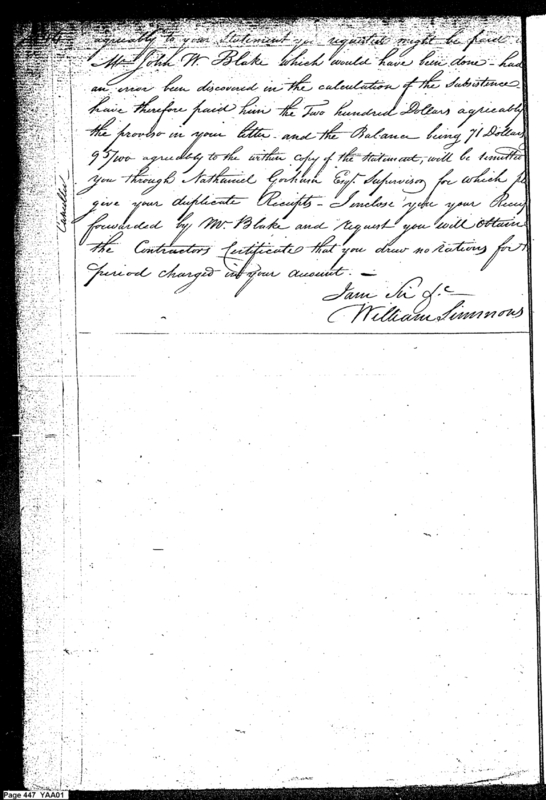 agreeably to your Statement you requested might be paid
Mr John W Blake which would have been done - had
an error been discovered in the calculation of the Subsistence
have therefore paid him the Two hundred Dollars agreeably
the proviso in your letter - and the Balance being 71 Dollars
95/100 agreeably to the within copy of the Statement, will be remitted
you through Nathaniel Gorham Esqr. Supervisor for which
give your duplicate Receipts - I inclose you your
forwarded by Mr Blake and request you will obtain
the Contractors Certificate that you drew no Rations for
period charged in your account. —
I am Sir &c
William Simmons
Page 447 YAA01